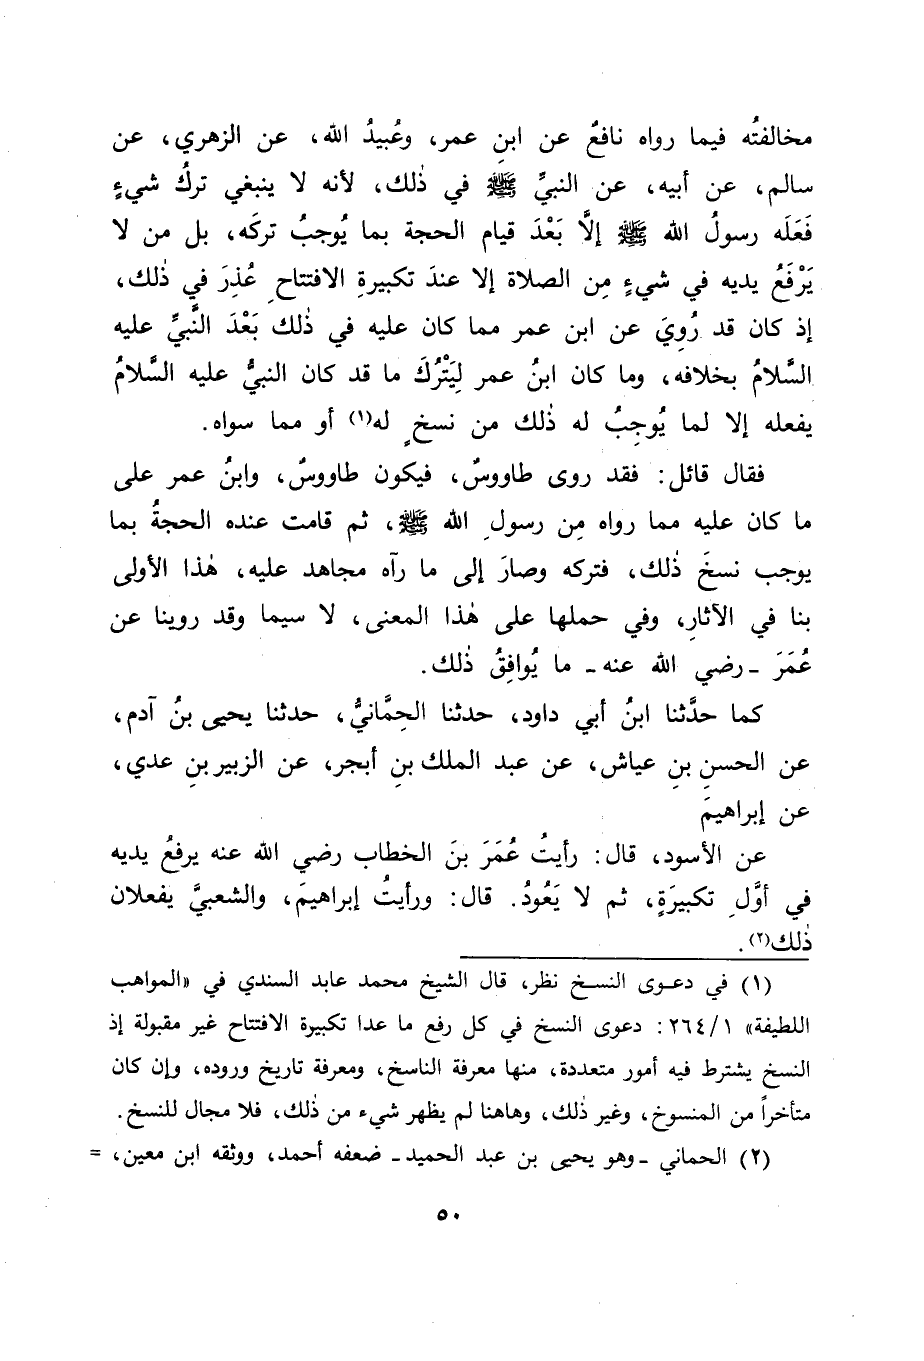 مخالفتُه فيما رواه نافعٌ عن ابنِ عمر، وعُبيدُ الله، عن الزهري، عن
سالم، عن أبيه، عن النبيِّ ﷺ في ذٰلك، لأنه لا ينبغي تركُ شيءٍ
فَعَلَه رسولُ الله ﷺ إلَّا بَعْدَ قيام الحجة بما يُوجبُ تركَه، بل من لا
يَرْفَعُ يديه في شيءٍ مِن الصلاة إلا عندَ تكبيرةِ الافتتاحِ عُذِرَ في ذٰلك،
إذ كان قد رُوِيَ عن ابن عمر مما كان عليه في ذٰلك بَعْدَ النَّبيِّ عليه
السَّلامُ بخلافه، وما كان ابنُ عمر لِيَتْرُكَ ما قد كان النبيُّ عليه السَّلامُ
يفعله إلا لما يُوجِبُ له ذٰلك من نسخٍ له(١) أو مما سواه.
فقال قائل: فقد روى طاووسٌ، فيكون طاووسٌ، وابنُ عمر على
ما كان عليه مما رواه مِن رسولِ الله ﷺ، ثم قامت عنده الحجةُ بما
يوجب نسخَ ذٰلك، فتركه وصارَ إلى ما رآه مجاهد عليه، هٰذا الأولى
بنا في الآثارِ، وفي حملها على هٰذا المعنى، لا سيما وقد روينا عن
عُمَرَ ـ رضي الله عنه ـ ما يُوافِقُ ذٰلك.
كما حدَّثنا ابنُ أبي داود، حدثنا الحِمَّانيُّ، حدثنا يحيى بنُ آدم،
عن الحسنِ بنِ عياش، عن عبد الملك بنِ أبجر، عن الزبير بنِ عدي،
عن إبراهيمَ
عن الأسود، قال: رأيتُ عُمَرَ بنَ الخطاب رضي الله عنه يرفعُ يديه
في أوَّلِ تكبيرَةٍ، ثم لا يَعُودُ. قال: ورأيتُ إبراهيمَ، والشعبيَّ يفعلان
ذٰلك(٢).
(١) في دعـوى النسـخ نظر، قال الشيخ محمد عابد السندي في «المواهب
اللطيفة» ٢٦٤/١: دعوى النسخ في كل رفع ما عدا تكبيرة الافتتاح غير مقبولة إذ
النسخ يشترط فيه أمور متعددة، منها معرفة الناسخ، ومعرفة تاريخ وروده، وإن كان
متأخراً من المنسوخ، وغير ذٰلك، وهاهنا لم يظهر شيء من ذٰلك، فلا مجال للنسخ.
(٢) الحماني ـ وهو يحيى بن عبد الحميد ـ ضعفه أحمد، ووثقه ابن معين، =
٥٠